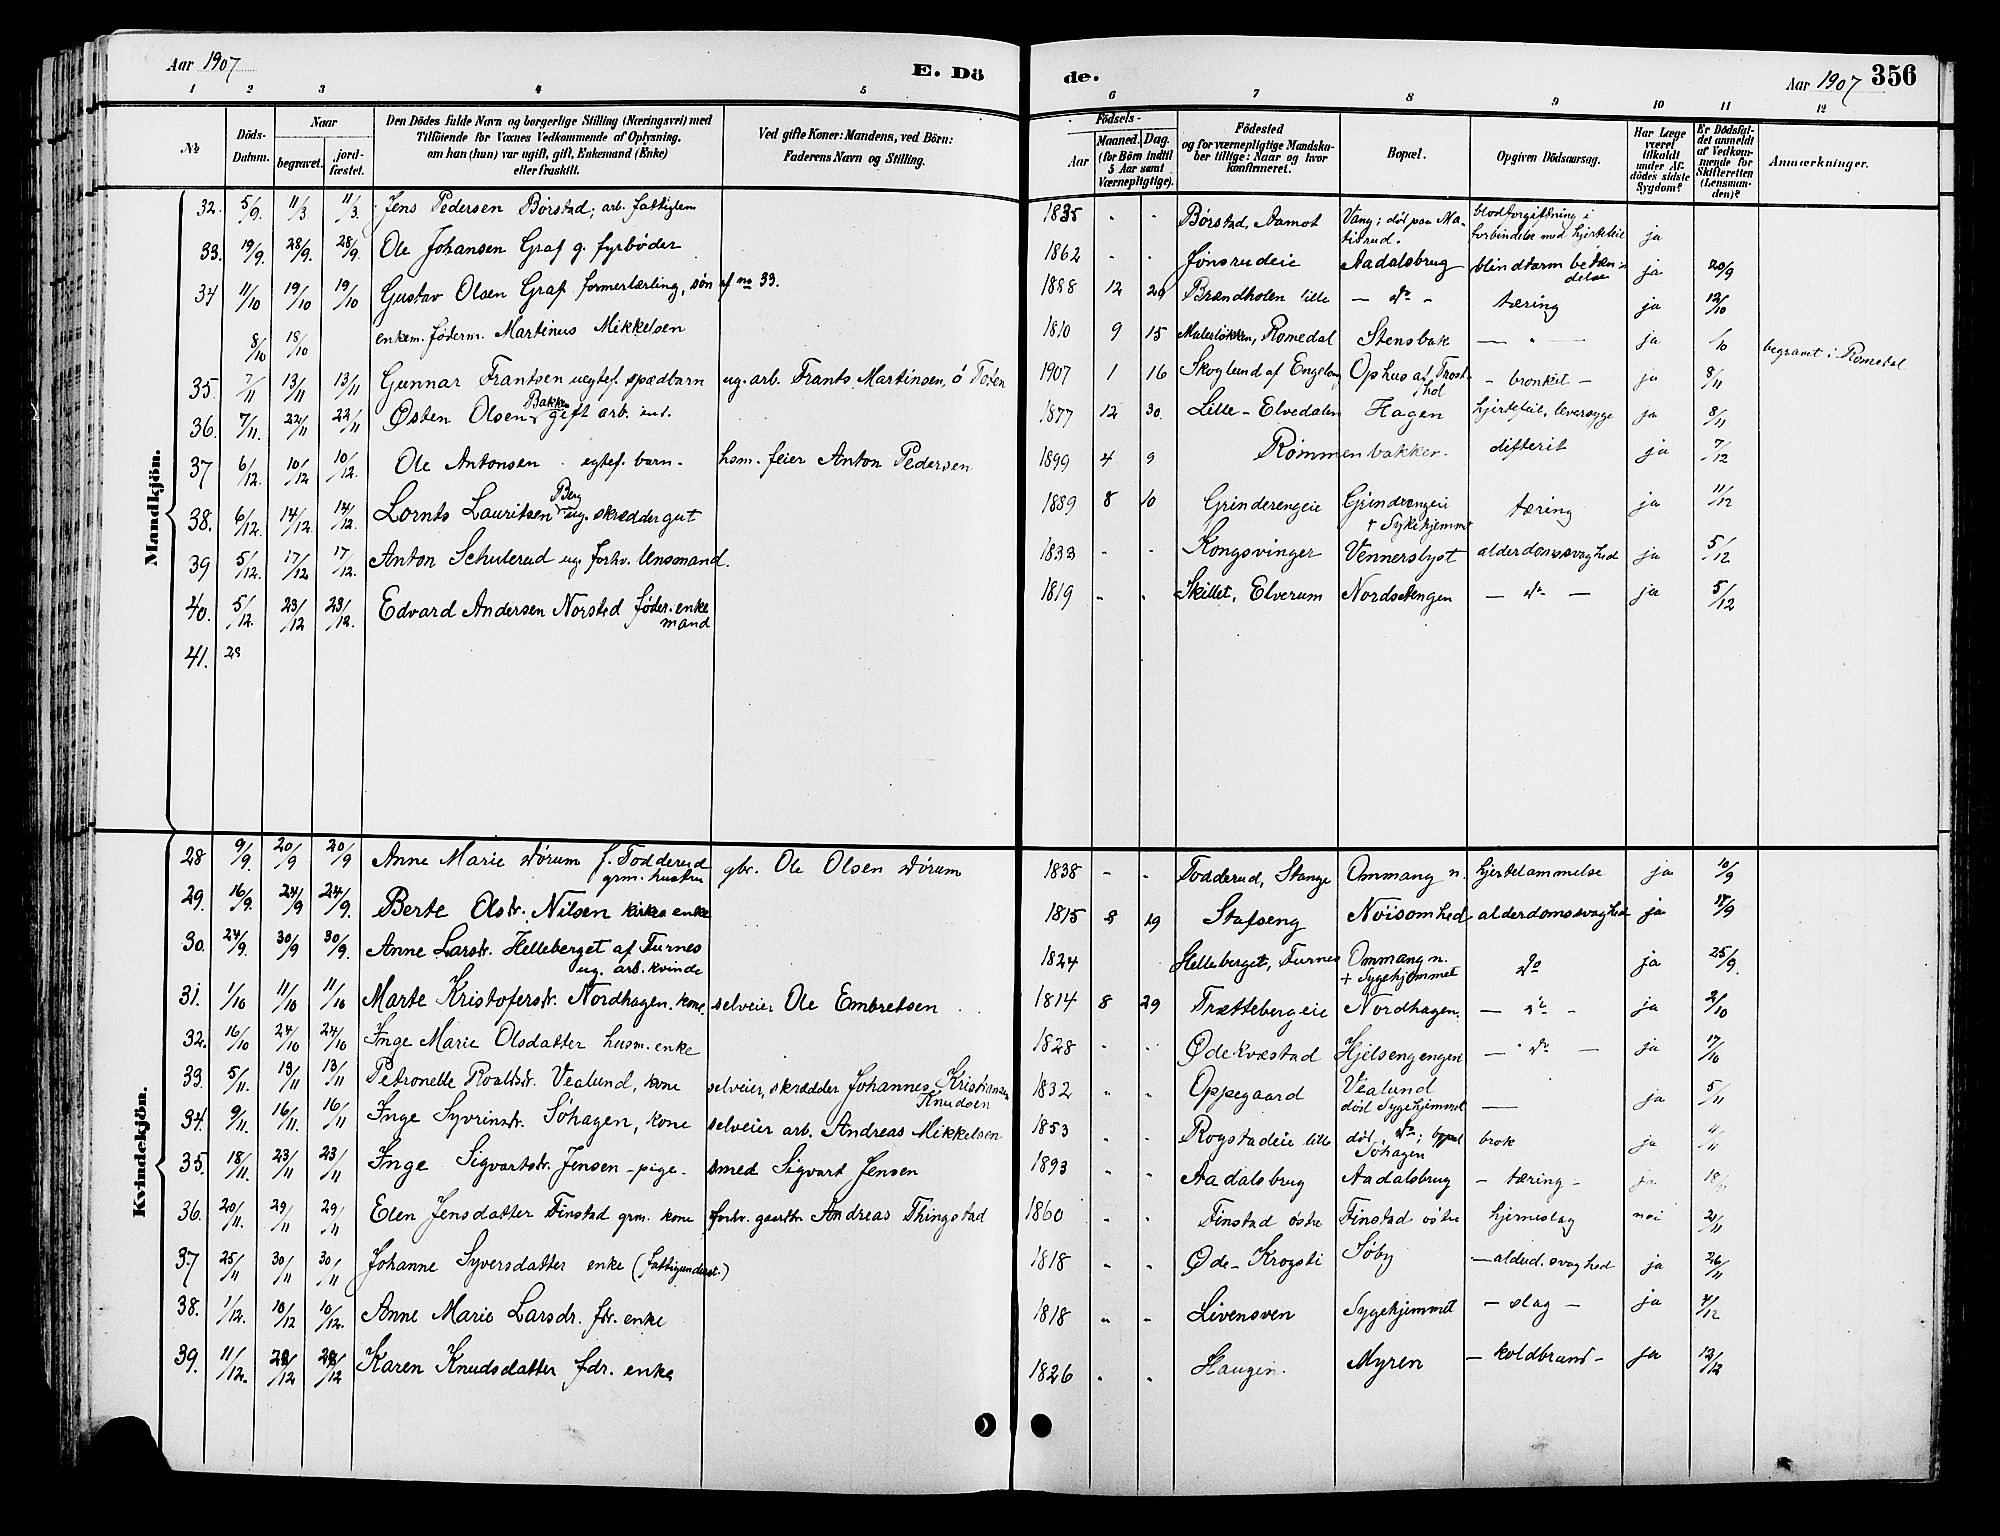 Aar 1907 E. Dö de. Aar 1907 356
1 2 3 4 5 6 7 8 9 10 11 12
№ Döds-Datum. Naar begravet. jord-fæstet. Den Dödes fulde Navn og borgerlige Stilling (Næringsvei) med Tilföiende for Voxnes Vedkommende af Oplysning, om han (hun) var ugift, gift, Enkemand (Enke) eller fraskilt. Ved gifte Koner: Mandens, ved Börn: Faderens Navn og Stilling. Födsels- Aar Maaned. Dag. (for Börn indtil 5 Aar samt Værnepligtige). Födested og for værnepligtige Mandska-ber tillige: Naar og hvor konfirmeret. Bopæl. Opgiven Dödsaarsag. Har Læge været tilkaldt under Af-dödes sidste Sygdom? Er Dödsfal-det anmeldt af Vedkom-mende for Skifteretten (Lensman-den)? Anmærkninger.
Mandkjön.
32. 5/9. 11/3 11/3. Jens Pedersen Børstad; arb. fattiglem 1835 - - Børstad, Aamot Vang; död paa Ma-tisrud. blodforgiftning i forbindelse med hjertefeil ja
33. 19/9. 28/9. 28/9. Ole Johansen Graf g. fyrbøder 1862 - - Jønsrudeie Aadalsbrug blindtarm betæn-delse ja 20/9
34 11/10 19/10 19/10 Gustav Olsen Graf formerlærling, søn af no 33. 1888 12 29 Brændholen lille — do — tæring ja 12/10
8/10 18/10 enkem. føderm. Martinus Mikkelsen 1810 9 15 Romedal Stensbak — " — ja /10 begravet i Romedal
35. 7/11 13/11 13/11 Gunnar Frantsen uegtef. spædbarn ug. arb. Frants Martinsen, ö Toten 1907 1 16 Skoglund af Ophus af - bronkit - ja 8/11
36. 7/11. 22/11 22/11 Østen Olsen Bakken gift arb. 1877 12 30. Lille-Elvedalen Hagen hjertefeil, leversyge ja 8/11
37 6/12. 10/12. 10/12. Ole Antonsen egtef. barn. hsm. feier Anton Pedersen 1899 4 9 Rømmenbakken difterit ja 7/12
38. 6/12. 14/12. 14/12. Lornts Lauritsen Berg ug. skræddergut 1889 8 10 Grinderengeie Grinderengeie + Sykehjemmet tæring ja 11/12
39 5/12. 17/12. 17/12. Anton Schulerud ug. forhv. 1833 - - Kongsvinger Vennerslyst alderdomssvaghed ja 5/12
40. 5/12. 23/12 23/12. Edvard Andersen Norsted føder. enke mand 1819 - - Skillet, Elverum Nordsetengen — do — ja 5/12
41. 28
Kvindekjön.
28 9/9. 20/9 20/9 Anne Marie Dørum f. Todderud grm. hustru gbr. Ole Olsen Dørum 1838 - - Todderud, Stange Ommang n. hjertelammelse ja 10/9
29. 16/9. 24/9 24/9. Berte Olsdr. Nilsen enke 1815 8 29 Stafseng Nöisomhed alderdomssvaghed ja 17/9
30. 24/9. 30/9 30/9. Anne Larsdr. Helleberget af Furnes ug. arb. kvinde 1824 Helleberget, Furnes Ommang n. + Sygehjemmet do ja 25/9.
31. 1/10 11/10 11/10 Marte Kristofersdr. Nordhagen. kone. selveier Ole Embretsen 1814 8 29 Trættebergeie Nordhagen. — do — ja 2/10
32. 16/10 24/10 24/10 Inge Marie Olsdatter husm. enke 1828 - - Øde Kvæstad Hjelsengengen — do — ja 17/10
33. 5/11. 13/11 13/11 Petronelle Vealund, kone selveier, skrædder Johannes Kristiansen Knudsen 1832 - - Oppegaard Vealund död Sygehjemmet — ja 5/11
34. 9/11. 16/11. 16/11 Inge Syvrinsdr. Söhagen, kone selveier arb. Andreas Mikkelsen 1853 - - Rogstadeie lille död do; bopæl Söhagen brok ja 11/11
35. 18/11 23/11 23/11 Inge Sigvartsdr. Jensen - pige - smed Sigvart Jensen 1893 - - Aadalsbrug Aadalsbrug - tæring - ja 18/
36. 20/11. 29/11 29/11 Elen Jensdatter Finstad grm. kone forhv. gaardbr Andreas Thingstad 1860 - - Finstad østre Finstad østre hjerneslag nei 21/11
37 25/11 30/11 30/11 Johanne Syversdatter enke (fattigunderst.) 1818 - - Øde-Krogsti Søby - alderd. svaghed ja 26/11
38. 1/12. 10/12 10/12. Anne Marie Larsdr. fdr. enke 1818 - - Livensven Sygehjemmet - slag - ja 4/12
39. 11/12. 28/12 28/12 Karen Knudsdatter fdr. enke 1826 - - Haugen. Myren - koldbrand - ja 12/12